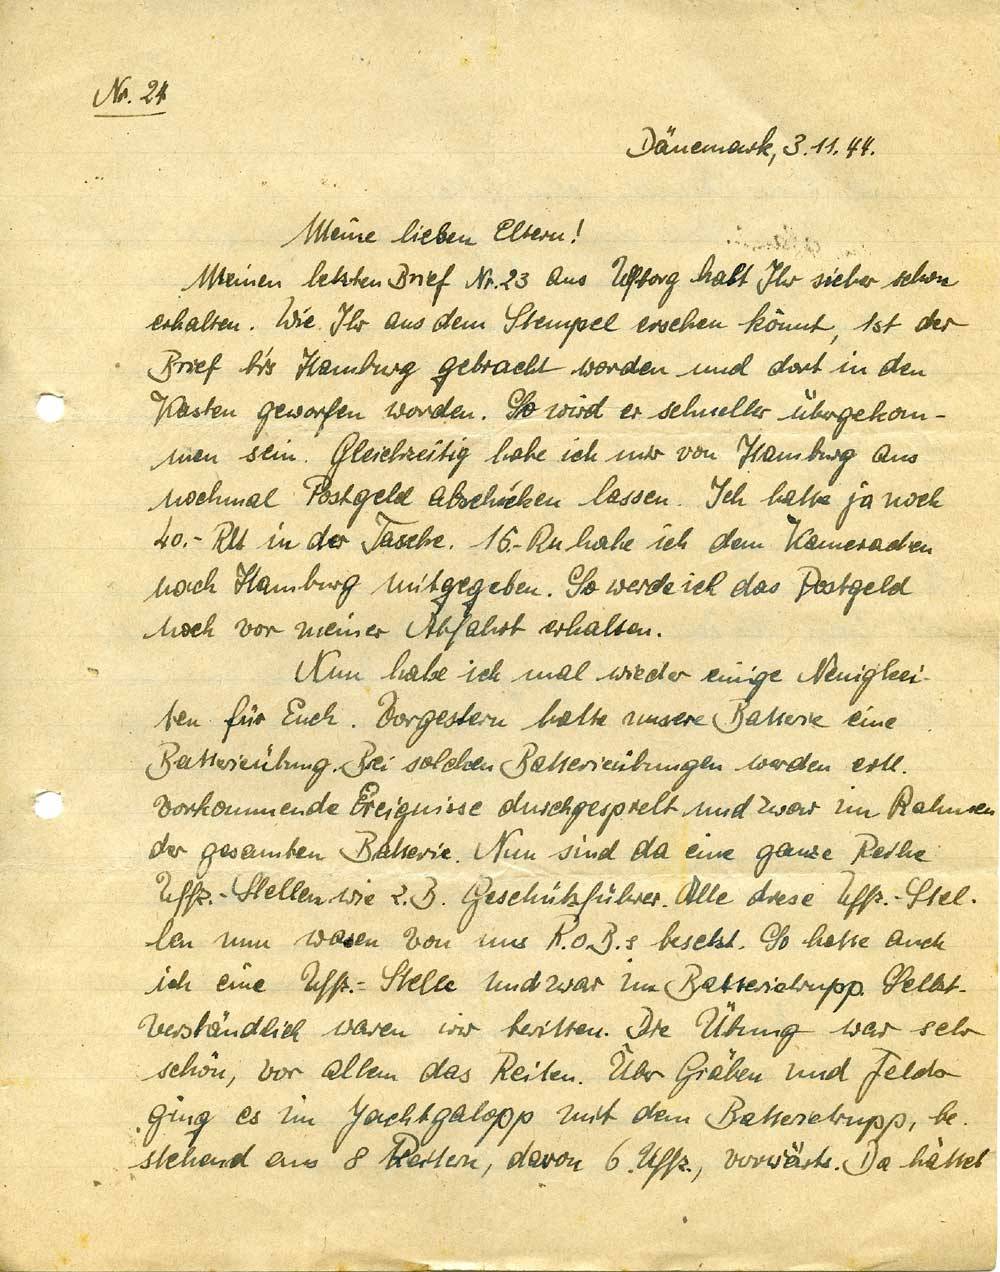 Nr. 24
Dänemark, 3.11.44.
Meine lieben Eltern!
Meinen letzten Brief Nr. 23 aus habt Ihr sicher schon
erhalten. Wie Ihr aus dem Stempel ersehen könnt, ist der
Brief bis Hamburg gebracht worden und dort in den
Kasten geworfen worden. So wird er schneller übergekom-
men sein. Gleichzeitig habe ich mir von Hamburg aus
nochmal Postgeld abschicken lassen. Ich hatte ja noch
40.- RM in der Tasche. 16.- RM habe ich dem Kameraden
nach Hamburg mitgegeben. So werde ich das Postgeld
noch vor meiner Abfahrt erhalten.
Nun habe ich mal wieder einige Neuigkei-
ten für Euch. Vorgestern hatte unsere Batterie eine
Batterieübung. Bei solchen Batterieübungen werden evtl.
vorkommende Ereignisse durchgespielt und zwar im Rahmen
der gesamten Batterie. Nun sind da eine ganze Reihe
Uffz.-Stellen wie z.B. Geschützführer. Alle diese Uffz.-Stel-
len nun waren von uns R.O.B.s besetzt. So hatte auch
ich eine Uffz.-Stelle und zwar im Batterietrupp. Selbst-
verständlich waren wir beritten. Die Übung war sehr
schön, vor allem das Reiten. Über Gräben und Felder
ging es im Jachtgalopp mit dem Batterietrupp, be-
stehend aus 8 Reitern, davon 6 Uffz., vorwärts. Da hättet